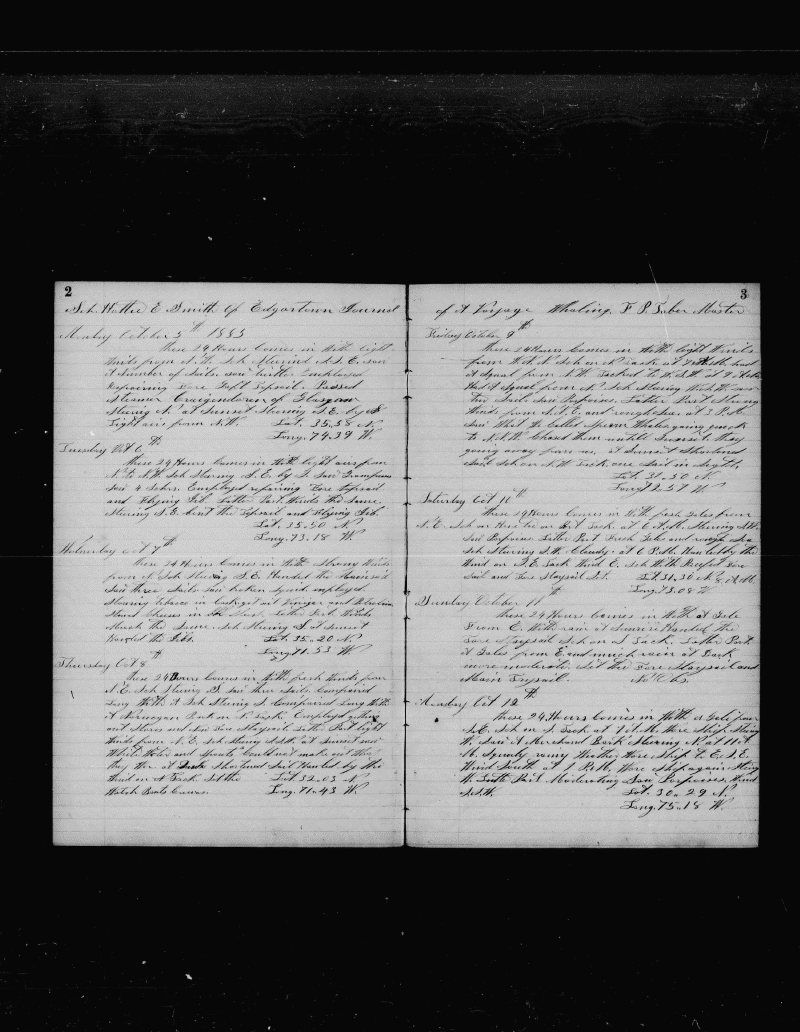 2
Sch. Hattie E Smith Of Edgartown Journal
Monday October 5th 1885
These 24 Hours Comes in With light
Winds from N.W. Sch Steering S.S.E. saw
A Number of Sails. Employed
Repairing Fore Gaft Topsail. Passed
Steamer Craigendoran of Glasgow
Steering N. at Sunset Steering S.E. by S
Light airs form N.W. Lat. 35.58 N
Long. 74.39 W.
Tuesday Oct 6th
These 24 Hours Comes in With light airs from
N. to N.W. Sch Steering S.E. by S. Saw Grampuses
Saw 4 Schrs. Employed repairing Fore Topsail
and Flying Jib. Latter Part Winds the Same
Steering S.E. Bent the Topsail and Flying Jib
Lat. 35.50 N
Long. 73.18 W
Wednesday Oct 7th
These 24 Hours Comes in With Strong Winds
from N. Sch Steering S.E. Handed the Mainsail
Saw three Sails saw broken Squid. employed
Stowing Tobacco in Casks got out Vinegar and
in Latter Part Winds
Much the Same. Sch Steering S at Sunset
the Jibs. Lat. 35-20 N
Long 71.53 W
Thursday Oct 8th
These 24 Hours Comes in With fresh Winds from
N.E. Sch Steering S. Saw three Sails Compaired
Long With A Sch Steering S. Compaired Long With
A Norwegan Bark on N. Tack. Employd getting
out Stores and Fore Staysail. Latter Part light
Winds from N.E. Sch Steering S.S.W. at Sunset saw
White Water and Spouts Could not make out What
they Wer at Dark Shortened Sail Hauled by the
Wind on Tack Set the Lat. 33-03 N
Watch Boats Crews. Long. 71-43 W.
3
of A Voyage Whaling. F P. Taber Master
Friday October 9th
These 24 Hours Comes in With light Winds
from Sch on Tack at had
A Squal from Tacked to
Had A Squal from N. Sch Steering
Two Sail. Saw Porpoises. Latter Part Strong
Winds from N.N.E. and rough Sea. at 3 P.M.
Saw What We Called Sperm Whales going quick
to N.N.W. Chased them until Sunset they
going away from us. at Sunset Shortened
Sail Sch on N.W Tack. one Sail in Sight,
Lat. 31.50 N
Long 72.57 W
Saturday Oct 10th
These 24 Hours Comes in With fresh Gales from
N.E. Sch on Tack. at 6 A.M. Steering S.W.
Saw Porpoises Latter Part Fresh Gales and rough Sea
Sch Steering S.W. Cloudy. at 6 P.M. Hauled by the
Wind on S.E. Tack Wind E. Sch With Reefed Fore
Sail and Fore Staysail Set. Lat. 31.30 N 8 A.M.
Long. 73.08 W
Sunday October 11th
These 24 Hours Comes in With A Gale
From E. With rain at Sunrise Handed the
Fore Staysail Sch on S. Tack. Latter Part
A Gales from E. and much rain at Dark
more moderate Set the Fore Staysail and
Main Trysail. No Obs.
Monday Oct 12th
These 24 Hours Comes in With A Gale from
S.E. Sch on S. Tack at 7 A.M. Wore Ship Steering
W. Saw A Merchant Bark Steering N. at 11 A.
M. Squaly rainy Weather Wore Ship to E.S.E.
Wind South at 1 P.M. Wore Ship again Steering
W. Latter Part Moderating Saw Porpoises. Wind
S.S.W. Lat. 30-29 N
Long. 75-18 W.